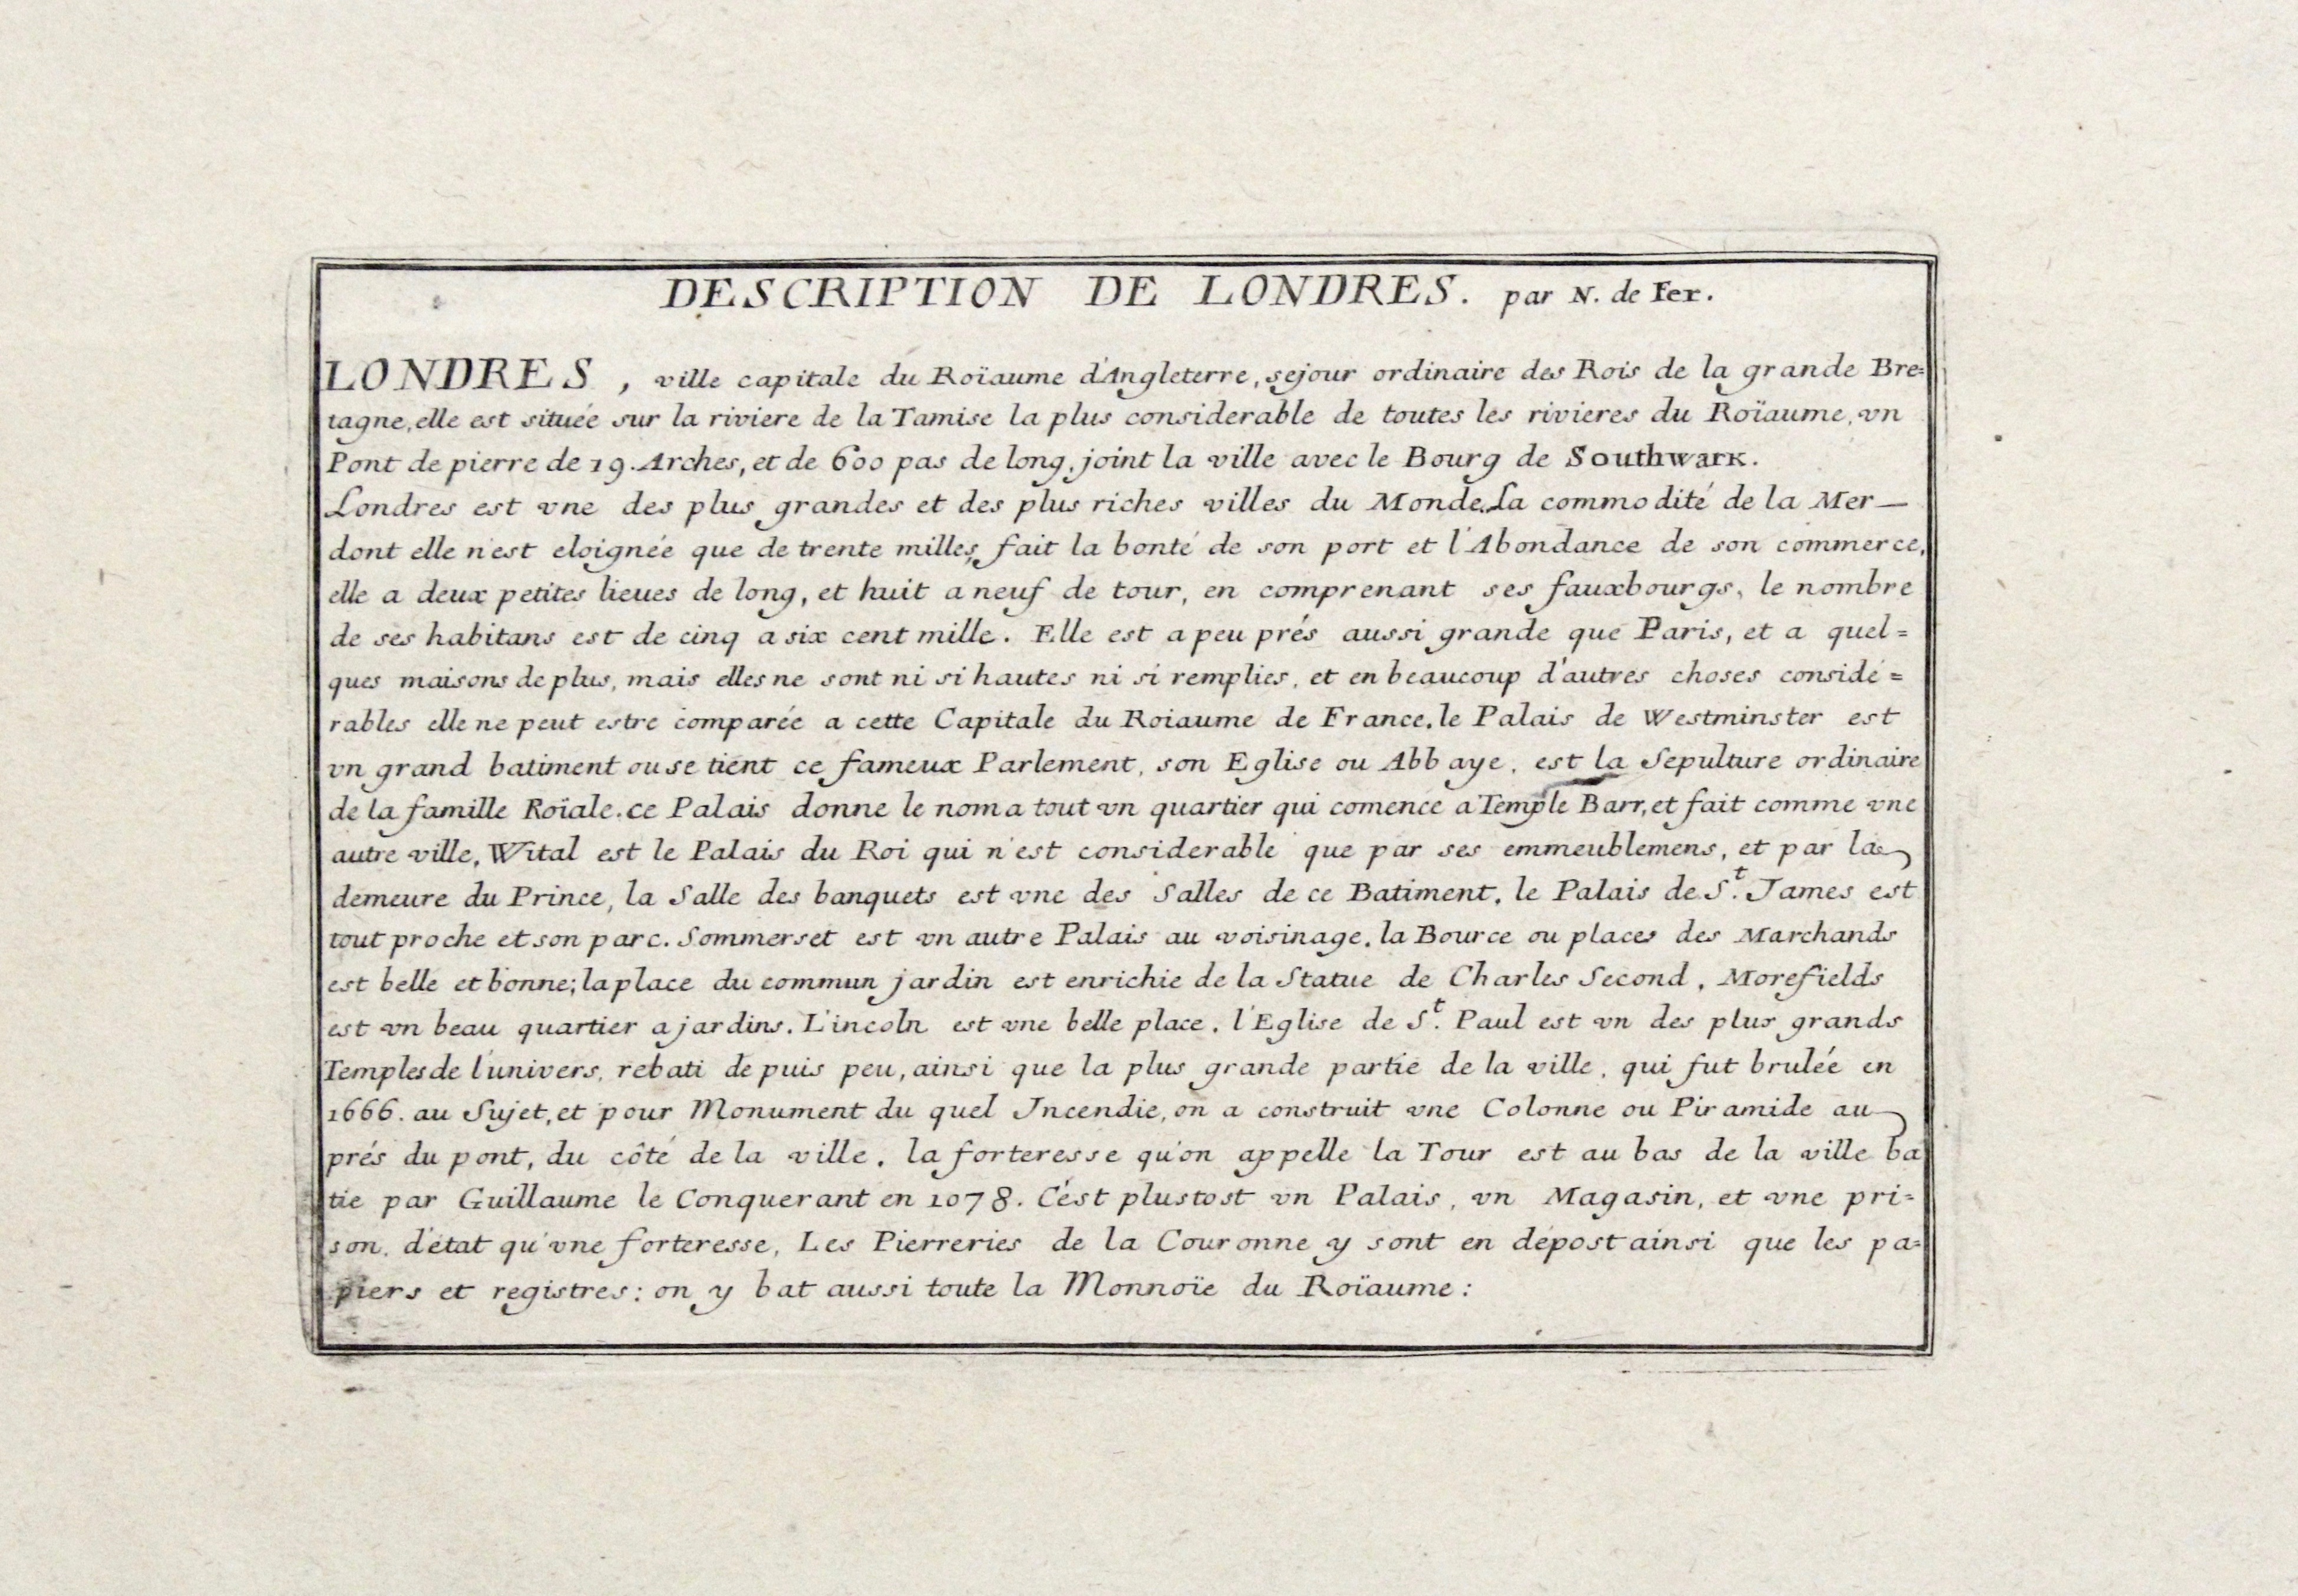 DESCRIPTION DE LONDRES. par N. de Fer.
LONDRES, ville capitale du Roïaume d'Angleterre, sejour ordinaire des Rois de la grande Bre=
tagne, elle est située sur la riviere de la Tamise la plus considerable de toutes les rivieres du Roïaume, vn
Pont de pierre de 19. Arches, et de 600 pas de long, joint la ville avec le Bourg de Southwark.
Londres est vne des plus grandes et des plus riches villes du Monde. La commodité de la Mer—
dont elle n'est eloignée que de trente milles, fait la bonté de son port et l'Abondance de son commerce,
elle a deux petites lieues de long, et huit a neuf de tour, en comprenant ses fauxbourgs, le nombre
de ses habitans est de cinq a six cent mille. Elle est a peu prés aussi grande que Paris, et a quel=
ques maisons de plus, mais elles ne sont ni si hautes ni si remplies, et en beaucoup d'autres choses considé=
rables elle ne peut estre comparée a cette Capitale du Roiaume de France. le Palais de Westminster est
vn grand batiment ou se tient ce fameux Parlement, son Eglise ou Abbaye, est la Sepulture ordinaire
de la famille Roïale. ce Palais donne le nom a tout vn quartier qui comence a Temple Barr, et fait comme vne
autre ville, Wital est le Palais du Roi qui n'est considerable que par ses emmeublemens, et par la
demeure du Prince, la Salle des banquets est vne des Salles de ce Batiment. le Palais de St. James est
tout proche et son parc. Sommerset est vn autre Palais au voisinage. la Bource ou places des Marchands
est belle et bonne; la place du commun jardin est enrichie de la Statue de Charles Second, Morefields
est vn beau quartier a jardins. L'incoln est vne belle place. l'Eglise de St. Paul est vn des plus grands
Temples de l'univers, rebati depuis peu, ainsi que la plus grande partie de la ville, qui fut brulée en
1666. au Sujet, et pour Monument du quel Incendie, on a construit vne Colonne ou Piramide au
prés du pont, du côté de la ville. la forteresse qu'on appelle la Tour est au bas de la ville ba
tie par Guillaume le Conquerant en 1078. C'est plustost vn Palais, vn Magasin, et vne pri=
son, d'état qu'vne forteresse, Les Pierreries de la Couronne y sont en dépost ainsi que les pa=
piers et registres: on y bat aussi toute la Monnoïe du Roïaume: